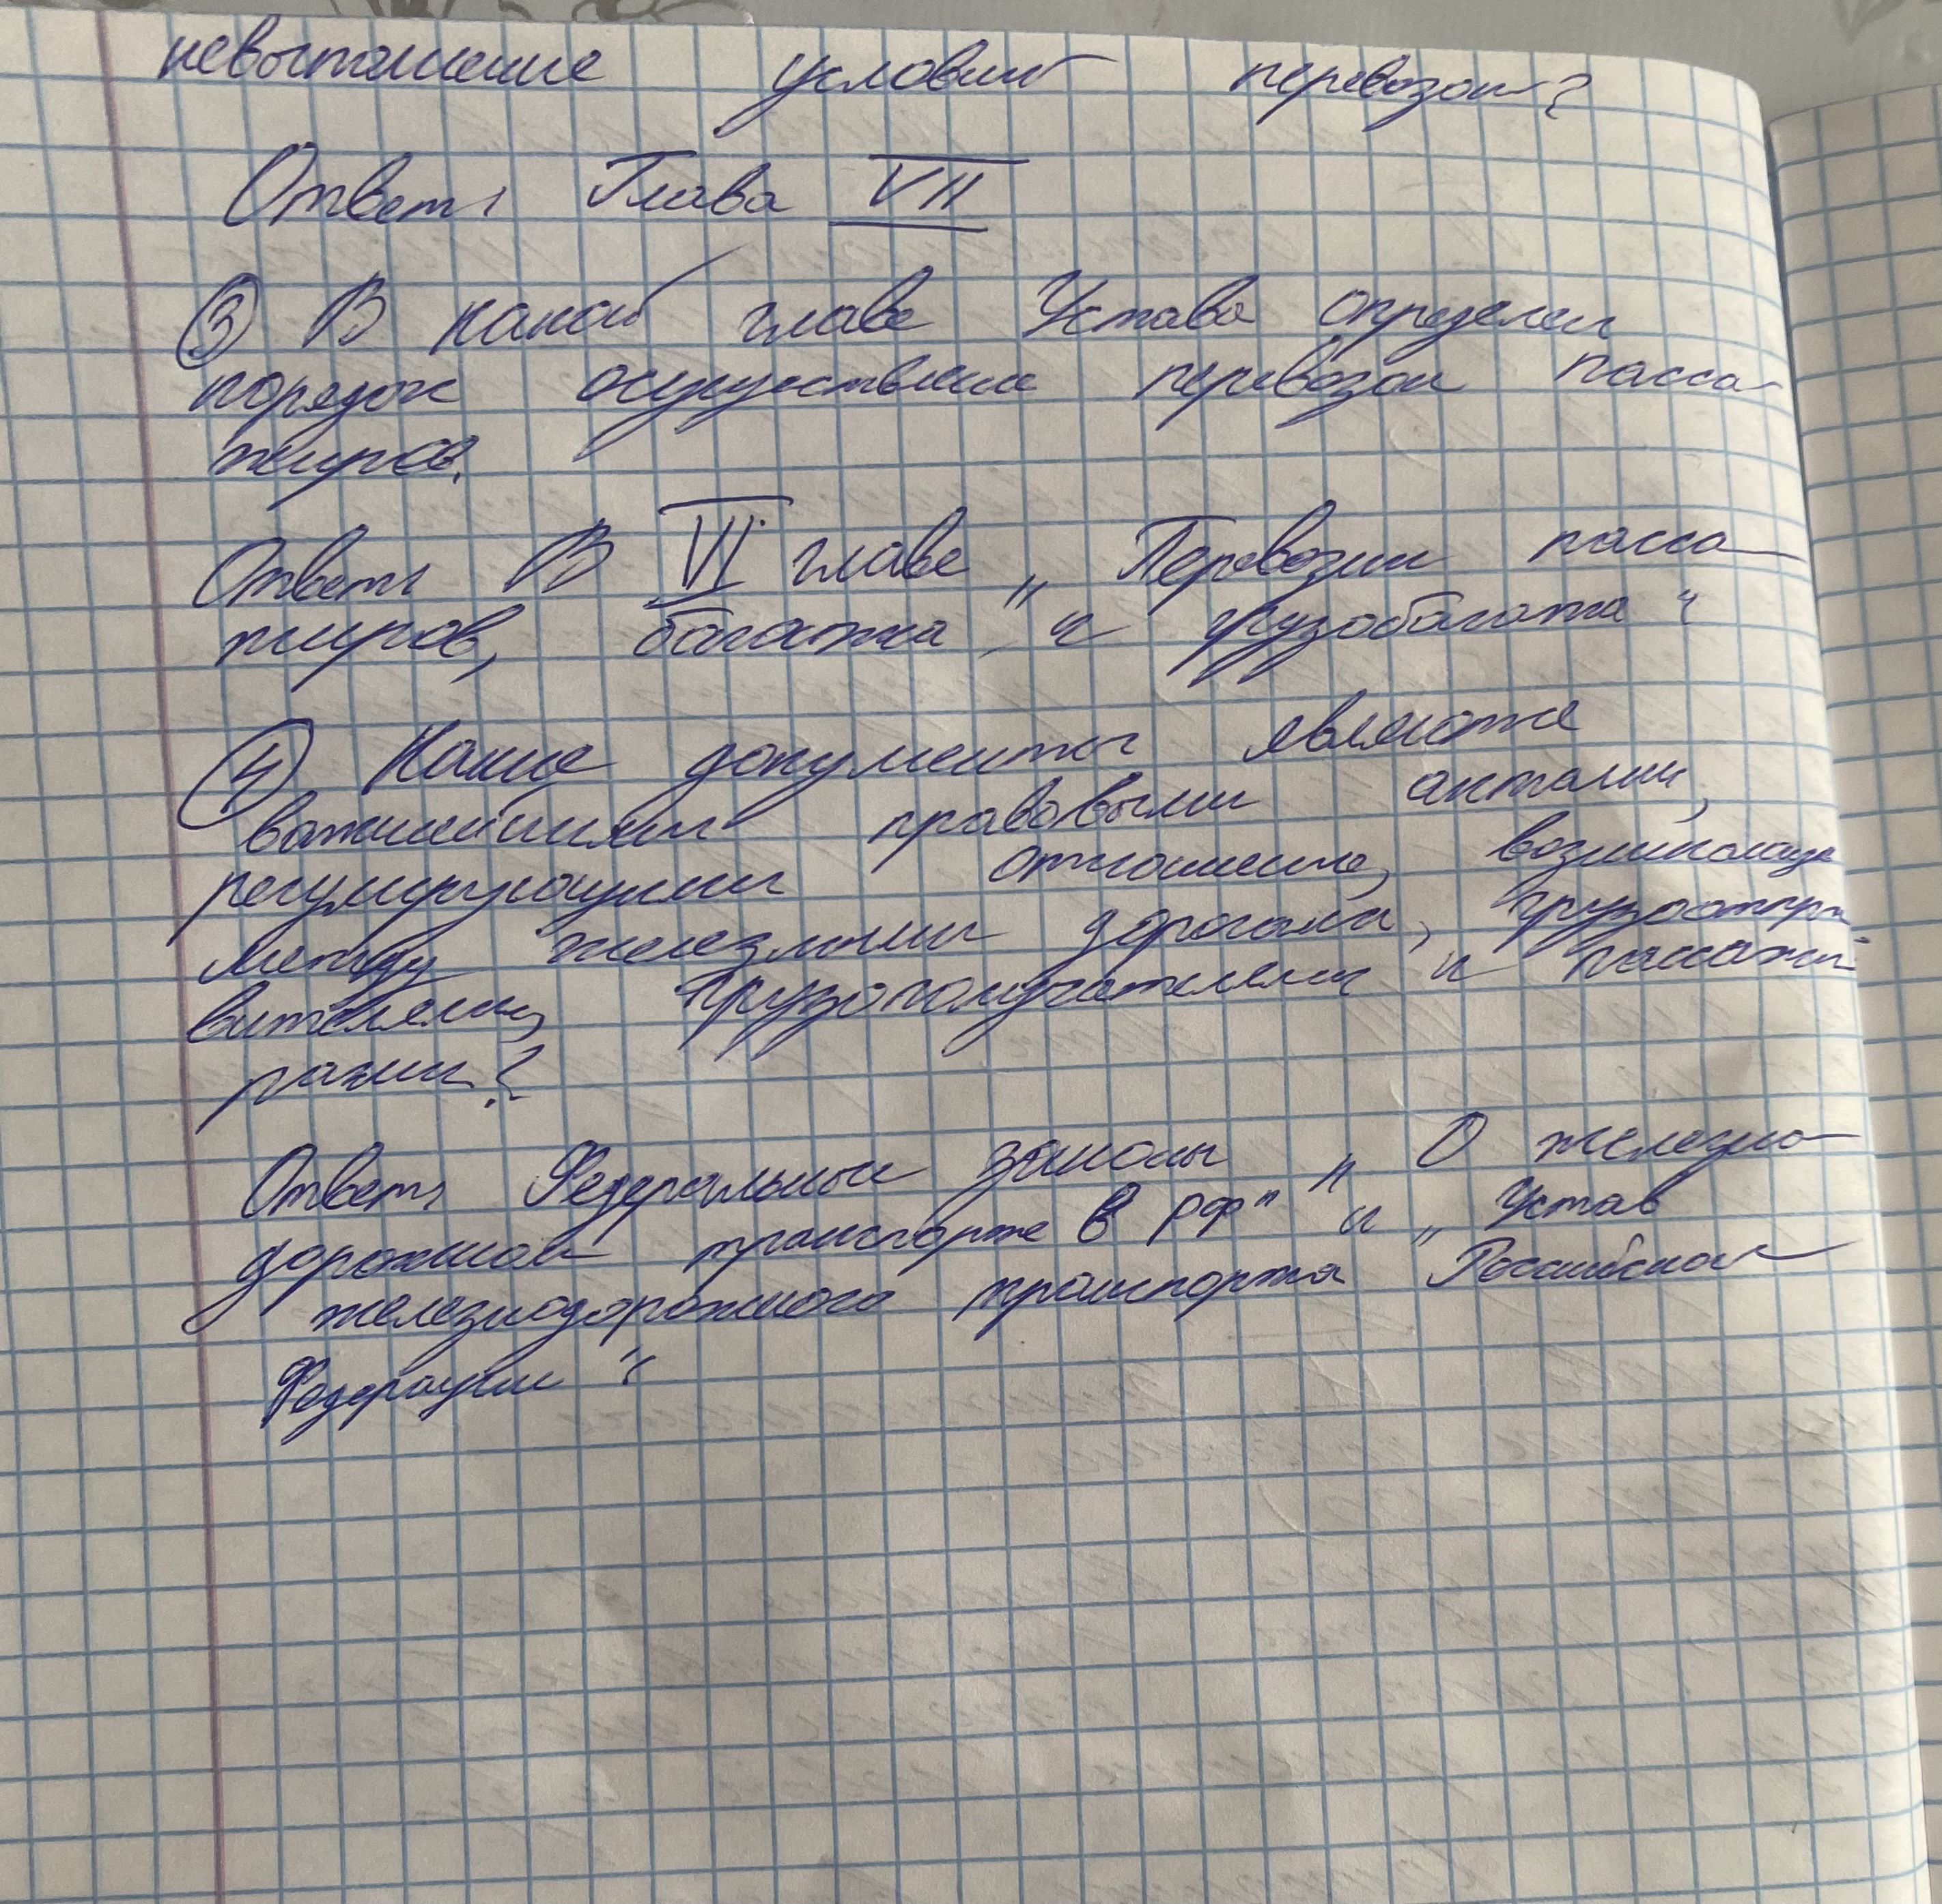 невыполнение условий перевозок?
Ответ: Глава VII
③ В какой главе Устава определен
порядок осуществление перевозок пасса-
жиров.
Ответ: В VI главе „Перевозки пасса-
жиров, багажа и грузобагажа“
④ Какие документы являются
важнейшими правовыми актами,
регулирующими отношение, возникающие
между железными дорогами, грузоотпра-
вителями, грузополучателями и пассажи-
рами?
Ответ: Федеральные законы „О железно-
дорожном транспорте в РФ" и „Устав
железнодорожного транспорта Российской
Федерации“